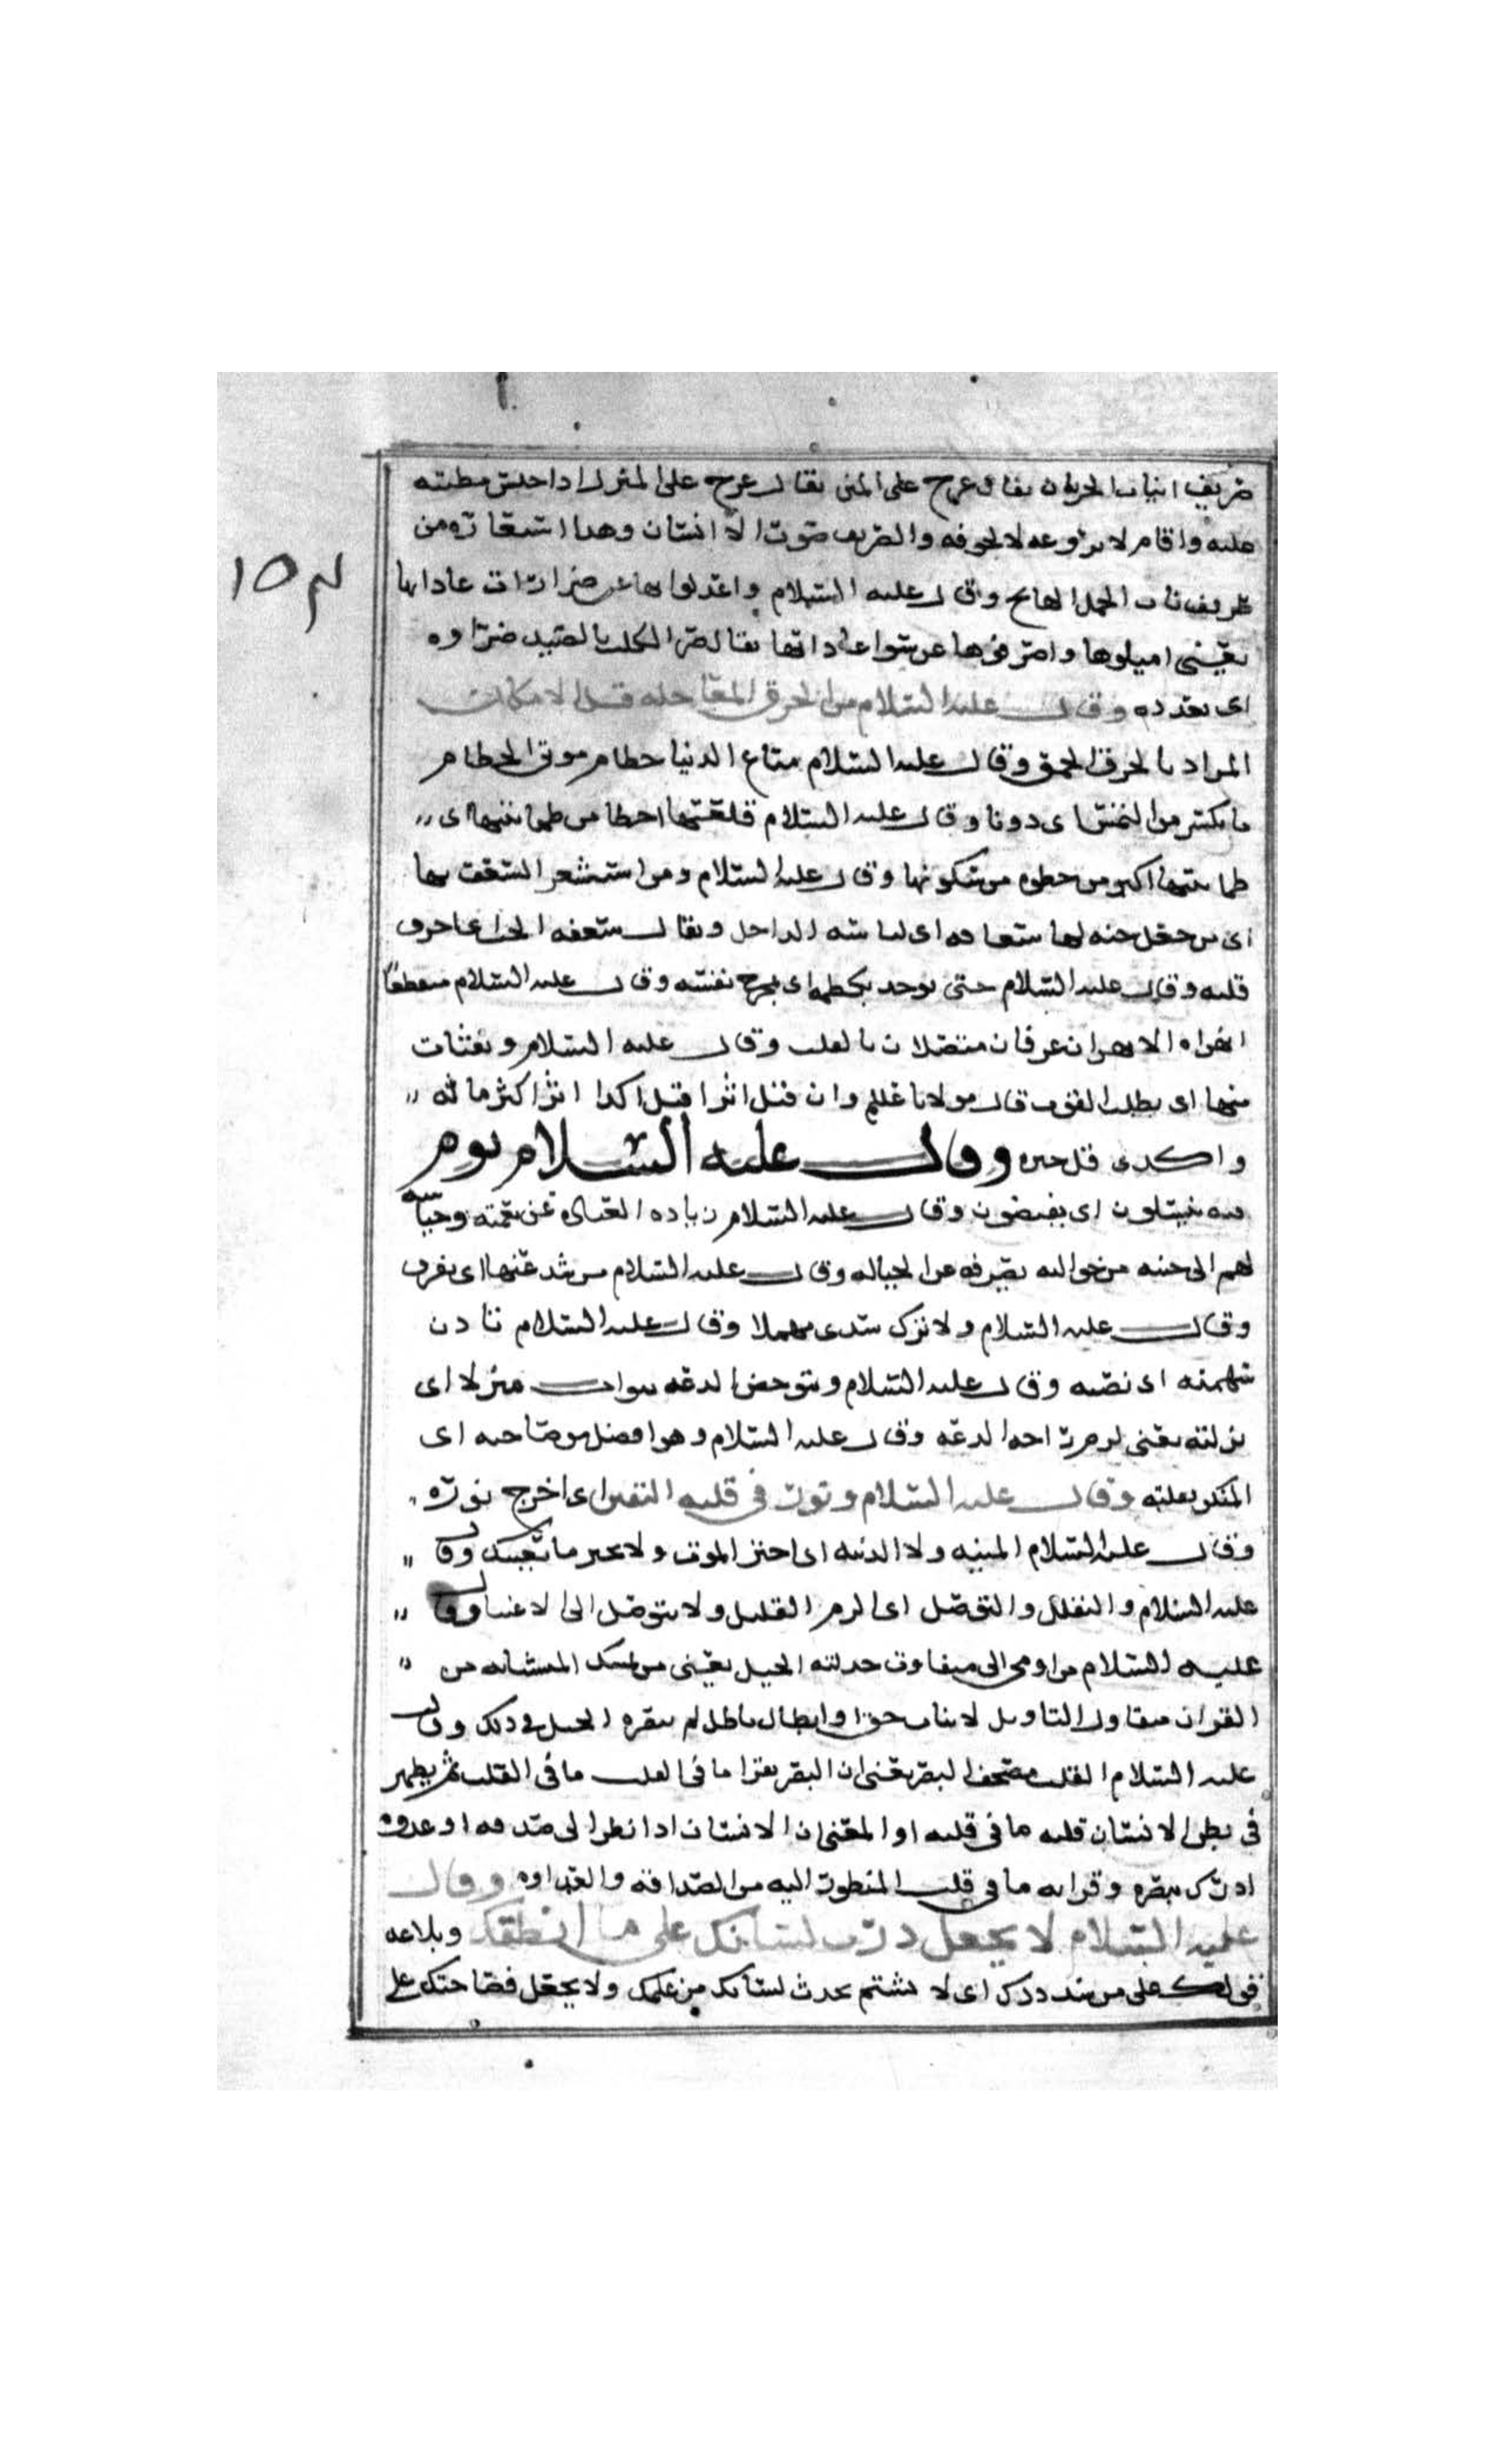 صريف انياب الحدثان يقال عرج على المنزل اذا حبس مطيته
عليه واقام لا يروعه لا يخوفه والصريف صوت الاسنان وهذا استعارة من
صريف ناب الجمل الهايج وقال عليه السلام واعدلوا بها عن ضراوات عاداتها
يعني اميلوها واصرفوها عن سوا عاداتها يقال ضر الكلب بالصيد ضراوه
اى تعوده وقال عليه السلام من الخرق المعاجله قبل الامكان
المراد بالخرق الحمق وقال عليه السلام متاع الدنيا حطام موبى الحطام
ما يكسر من اليبس وقال عليه السلام قلعتها احظا من طمانينتها اى
طمانينتها اكبر من حظوه من سكونها وقال عليه السلام ومن استشعر الشعف بها
اى من جعل حبه لها شعاره اى لباسه الداخل ويقال شعفه الحب اى احرق
قلبه وقال عليه السلام حتى يوخذ بكظمه اى مخرج نفسه وقال عليه السلام منقطعا
ابهراه الابهران عرقان متصلان بالقلب وقال عليه السلام ويقتات
منها اى يطلب القوت قال مولانا عليلم وان قيل اثرا قيل اكدا اثرا كثر ماله
واكدى قل خيره وقال عليه السلام يوم
فيه يبلسون اى وقال عليه السلام زياده العباد عن نقمته وحياشه
لهم الى جنته من حوالته يصرفه عن الحباله وقال عليه السلام
وقال عليه السلام ولا ترك سدى مهملا وقال عليه السلام
اى نصيبه وقال عليه السلام وتبوء خفض الدعه بوات منزلا اى
نزلته يعنى لزم راحه الدعه وقال عليه السلام وهو افضل من صاحبه اى
المنكر بقلبه وقال عليه السلام ونور فى قلبه اليقين اى اخرج نوره
وقال عليه السلام المنيه ولا الدنيه اى اختر الموت ولا تختر ما يعيبك وقال
عليه السلام والتقلل والتوصل اى الزم القليل ولا تتوصل الى الاغنيا وقال
عليه السلام من اومى الى متفاوت خذلته الحيل يعنى من تمسك المتشابه من
القران متفاوت التاويل لاثبات حق او ابطال باطل لم تنصره الحيل فى ذلك وقال
عليه السلام القلب مصحف البصر يعنى ان البصر يقرا ما فى القلب ما فى القلب ثم يظهر
فى نظر الانسان قلبه ما فى قلبه او المعنى ان الانسان اذا نظر الى صديقه او عدوه
ادرك ببصره وقرا به ما فى قلب المنظور اليه من الصداقه والعداوه وقال
عليه السلام لا تجعل ذرب لسانك على من انطقك وبلاغه
قولك على من سددك اى لا تشتم بحدت لسانك من علمك ولا تجعل فصاحتك على
١٥٣